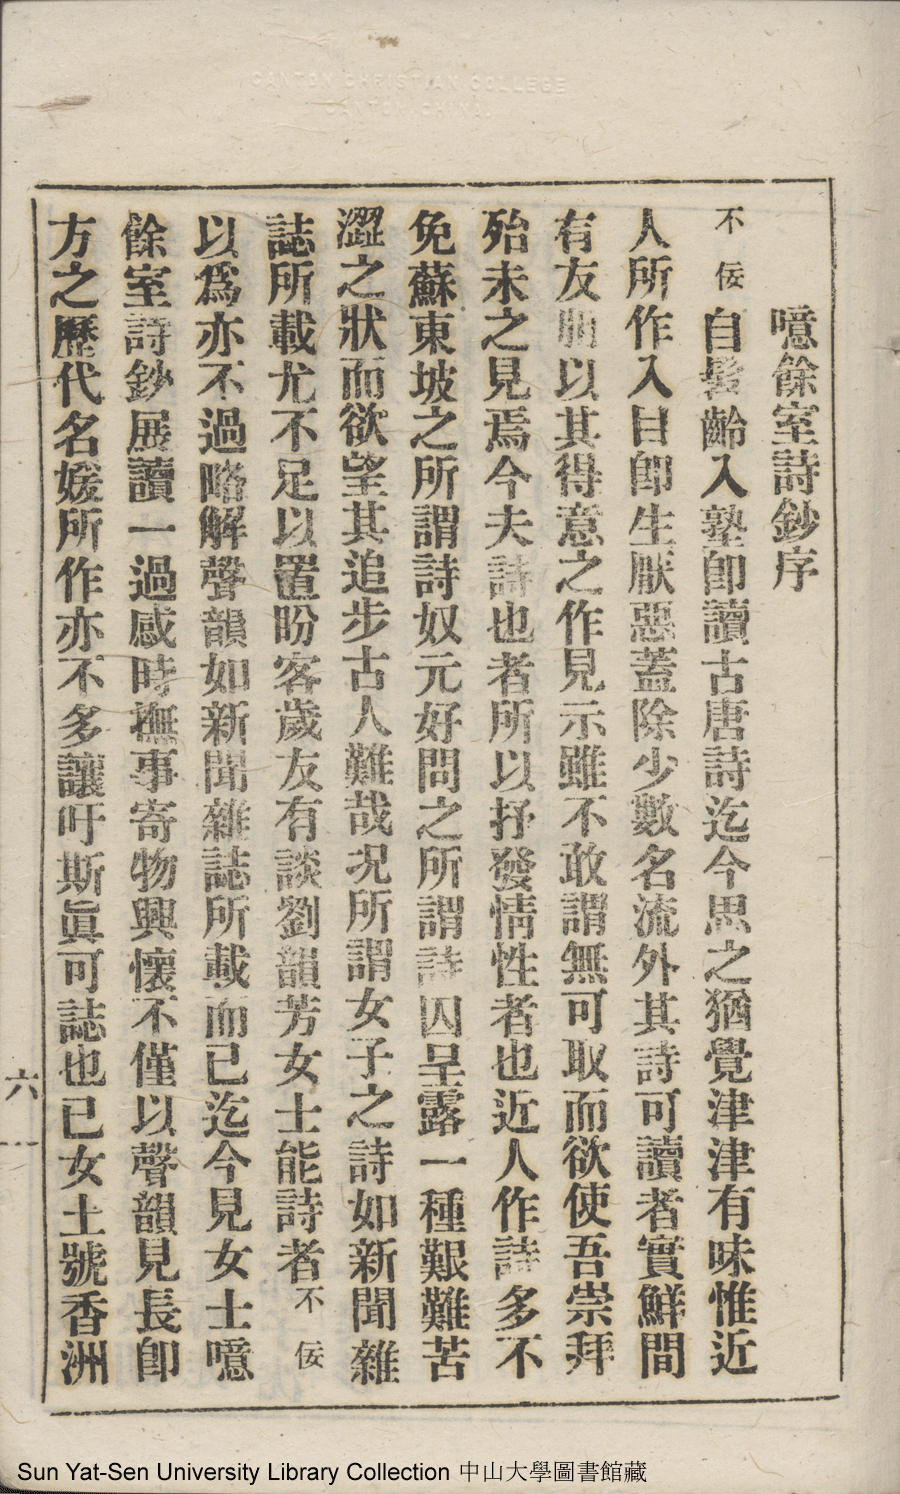 CANTON CHRISTIAN COLLEGE
CANTON, CHINA.
噫餘室詩鈔序
不佞自髫齡入塾卽讀古唐詩迄今思之猶覺津津有味惟近
人所作入目卽生厭惡蓋除少數名流外其詩可讀者實鮮間
有友朋以其得意之作見示雖不敢謂無可取而欲使吾崇拜
殆未之見焉今夫詩也者所以抒發情性者也近人作詩多不
免蘇東坡之所謂詩奴元好問之所謂詩囚呈露一種艱難苦
澀之狀而欲望其追步古人難哉况所謂女子之詩如新聞雜
誌所載尤不足以置盼客歲友有談劉韻芳女士能詩者不佞
以爲亦不過略解聲韻如新聞雜誌所載而已迄今見女士噫
餘室詩鈔展讀一過感時撫事寄物興懷不僅以聲韻見長卽
方之歷代名媛所作亦不多讓吁斯眞可誌也已女士號香洲
六一
Sun Yat-Sen University Library Collection 中山大學圖書館藏